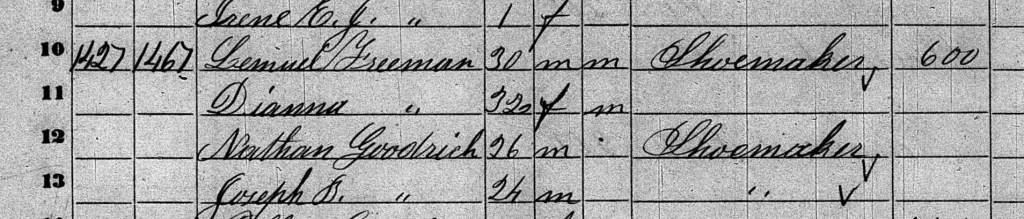 9 Irene E. J. " 1 f
10 1427 1467 Lemuel Freeman 30 m m Shoemaker 600
11 Dianna " 32 f m
12 Nathan Goodrich 26 m Shoemaker
13 Joseph B. " 24 m "